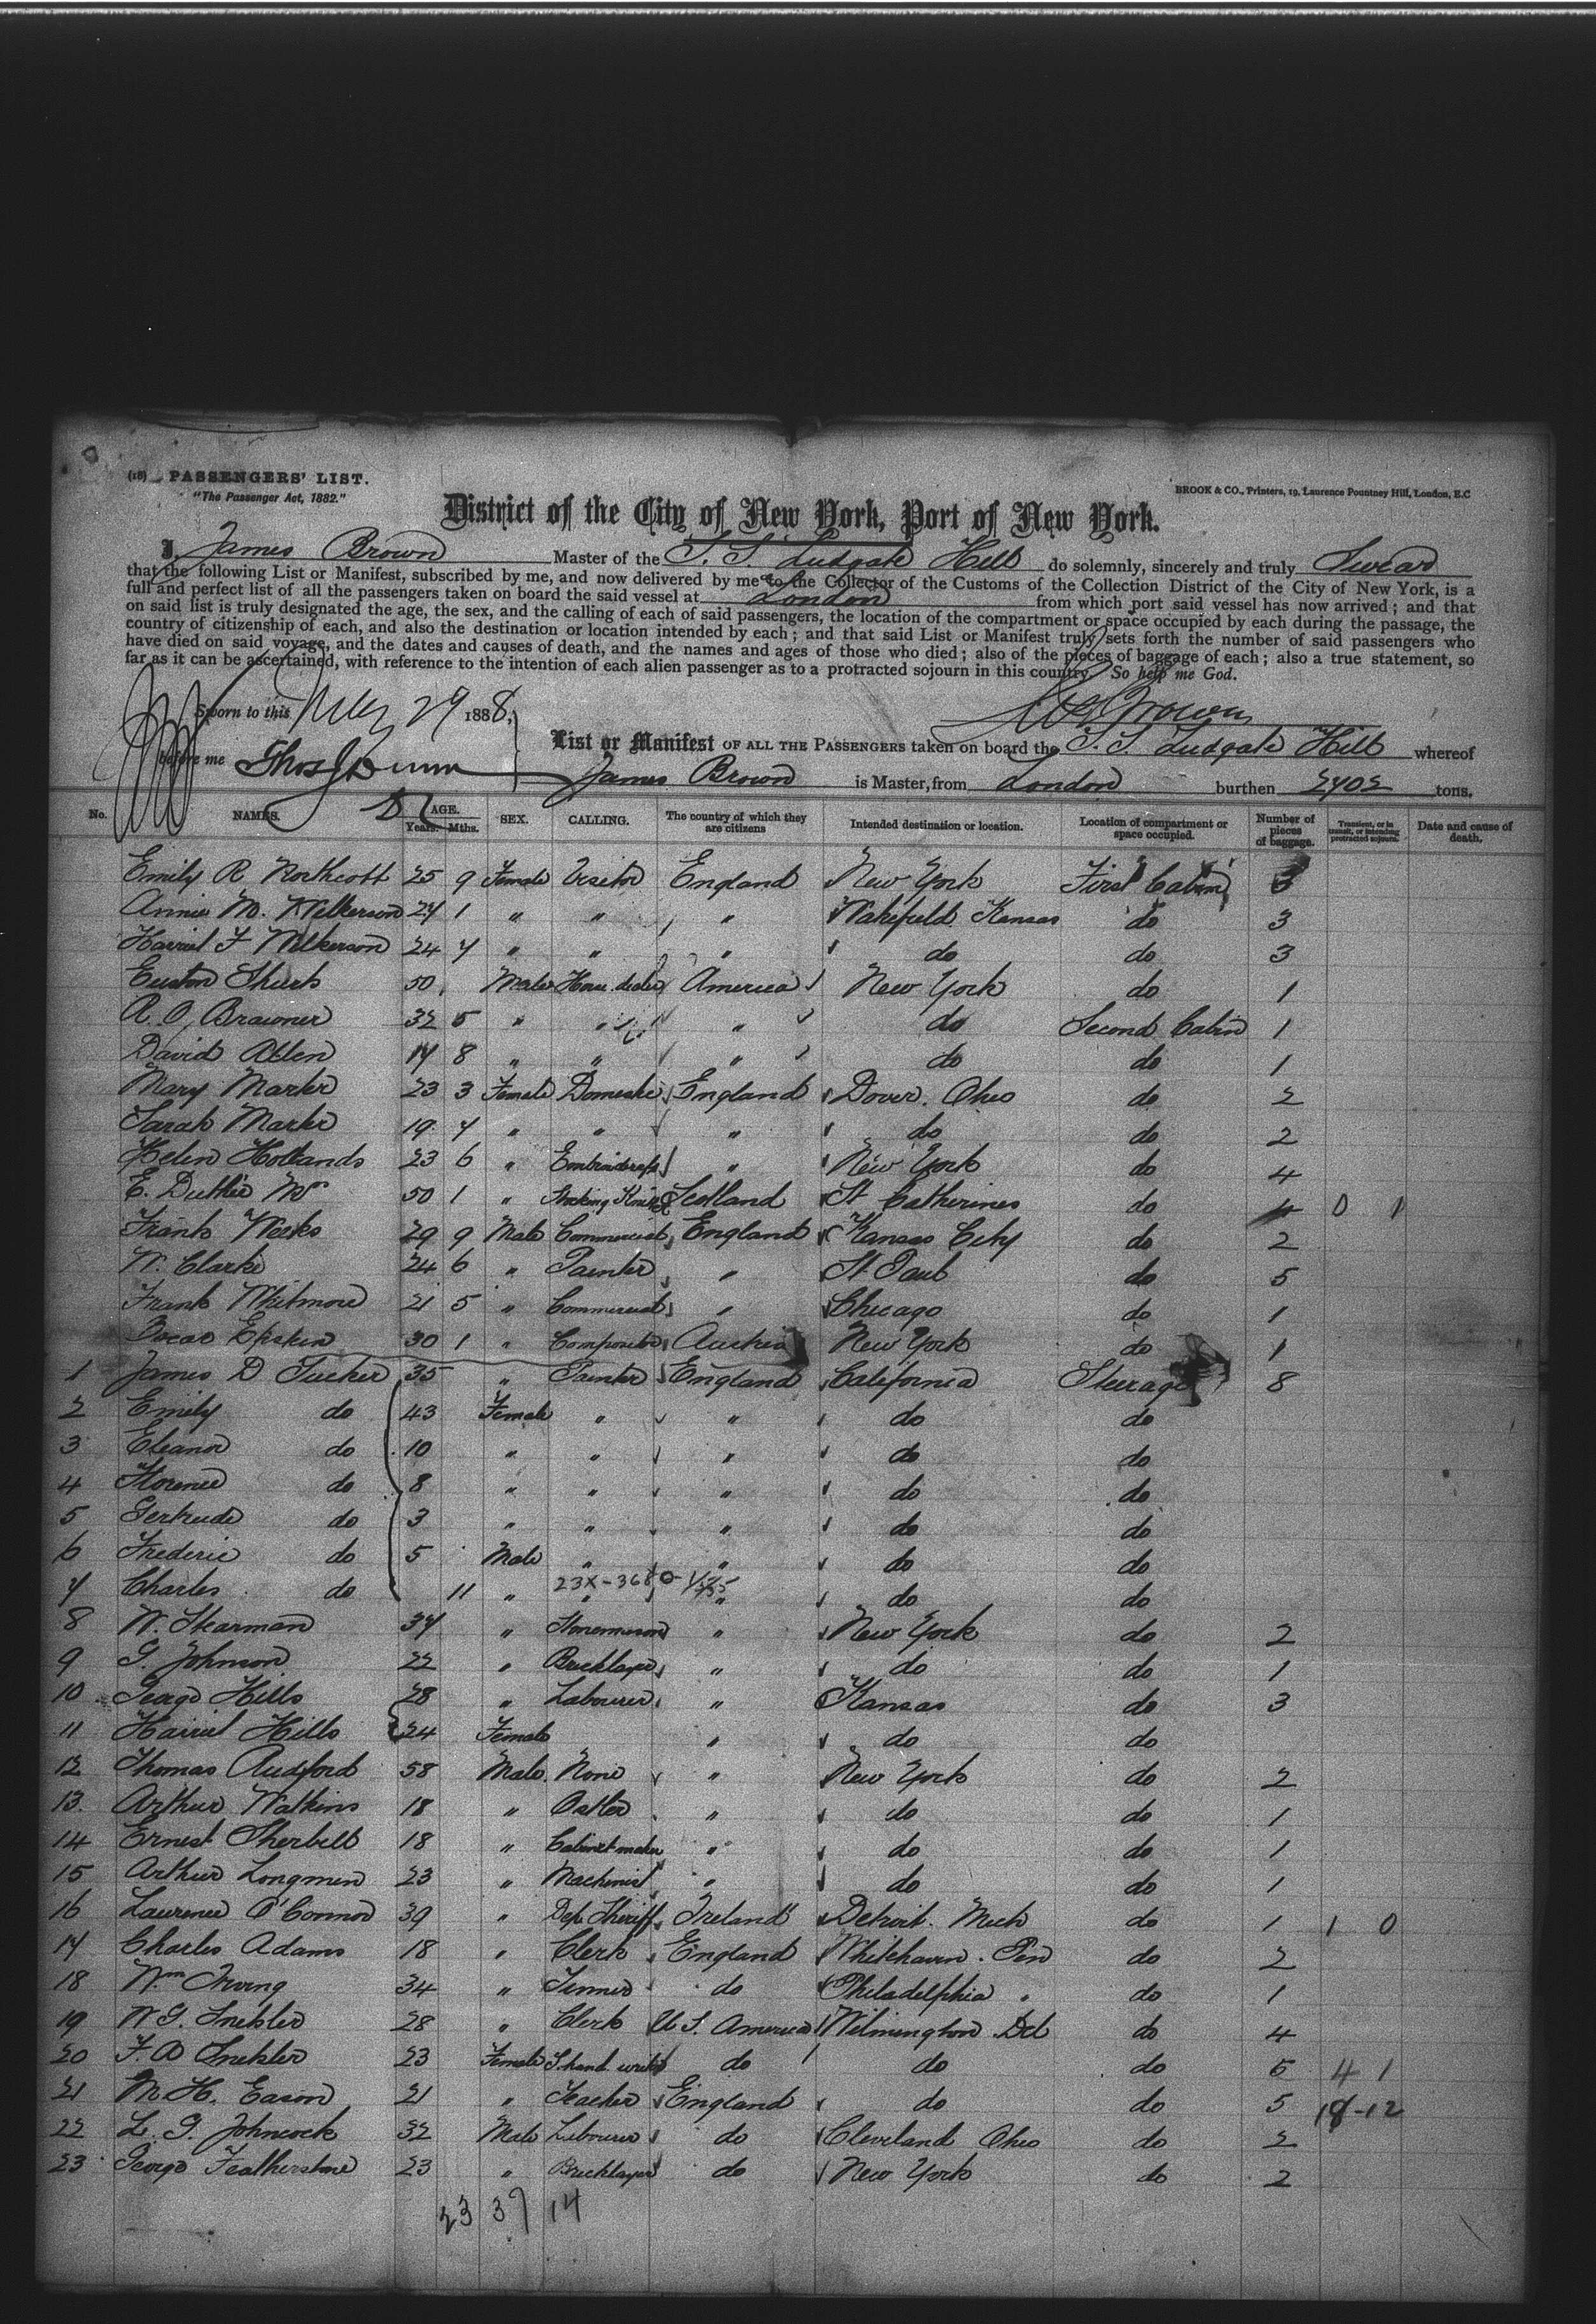 (18) PASSENGERS' LIST.
"The Passenger Act, 1882."
BROOK & CO., Printers, 19, Laurence Pountney Hill, London, E.C
District of the City of New York, Port of New York.
I, James Brown Master of the S. S. Ludgate Hill do solemnly, sincerely and truly Swear
that the following List or Manifest, subscribed by me, and now delivered by me to the Collector of the Customs of the Collection District of the City of New York, is a
full and perfect list of all the passengers taken on board the said vessel at London from which port said vessel has now arrived; and that
on said list is truly designated the age, the sex, and the calling of each of said passengers, the location of the compartment or space occupied by each during the passage, the
country of citizenship of each, and also the destination or location intended by each; and that said List or Manifest truly sets forth the number of said passengers who
have died on said voyage, and the dates and causes of death, and the names and ages of those who died; also of the pieces of baggage of each; also a true statement, so
far as it can be ascertained, with reference to the intention of each alien passenger as to a protracted sojourn in this country. So help me God.
Sworn to this May 29 1888, Brown
before me Thos J Dunn
List or Manifest OF ALL THE PASSENGERS taken on board the S. S. Ludgate Hill whereof
James Brown is Master, from London burthen 2402 tons.
No. NAMES. AGE. Years. Mths. SEX. CALLING. The country of which they are citizens Intended destination or location. Location of compartment or space occupied. Number of pieces of baggage. Transient, or in transit, or intending protracted sojourn. Date and cause of death.
Emily R Northcott 25 9 Female Visitor England New York First Cabin 3
Annie M. Wilkerson 27 1 " " " Wakefield Kansas do 3
Harriet F Wilkerson 24 7 " " " do do 3
Euston Sherb 50 Male Horse dealer America New York do 1
R. O. Brawner 32 5 " " " do Second Cabin 1
David Allen 17 8 " " " do do 1
Mary Marker 23 3 Female Domestic England Dover. Ohio do 2
Sarah Marker 19 7 " " " do do 2
Helen Hollands 23 6 " " New York do 4
E. Duthie Mrs 50 1 " Stocking Knitter Scotland St Catherines do 4 0 1
Frank Weeks 29 9 Male Commercial England Kansas City do 2
W. Clarke 24 6 " Painter " St Paul do 5
Frank Whitmore 21 5 " Commercial " Chicago do 1
Oscar Epstein 30 1 " Compositor Austria New York do 1
1 James D Tucker 35 " Painter England California Steerage 8
2 Emily do 43 Female " " do do
3 Eleanor do 10 " " " do do
4 Florence do 8 " " " do do
5 Gertrude do 3 " " " do do
6 Frederic do 5 Male " " do do
7 Charles do 11 " " " do do
23X-368
8 W. Stearman 37 " Stonemason " New York do 2
9 G. Johnson 22 " Bricklayer " do do 1
10 George Hills 28 " Labourer " Kansas do 3
11 Harriet Hills 24 Female " do do
12 Thomas Audford 58 Male None " New York do 2
13. Arthur Watkins 18 " Ostler " do do 1
14 Ernest Sherbell 18 " Cabinet maker " do do 1
15 Arthur Longmen 23 " Machinist " do do 1
16 Laurence O'Connor 39 " Dep. Sheriff Ireland Detroit. Mich do 1 1 0
17 Charles Adams 18 " Clerk England Whitehaven. Pen do 2
18 Wm Irving 34 " do Philadelphia do 1
19 W. G. 28 " Clerk U S. America Wilmington Del do 4
20 F. A 23 Female S. hand writer do do do 5 4 1
21 M. H. Eason 21 " Teacher England do do 5 18-12
22 L. G. Johncock 32 Male Labourer do Cleveland Ohio do 2
23 George Featherstone 23 " Bricklayer do New York do 2
23 37 14